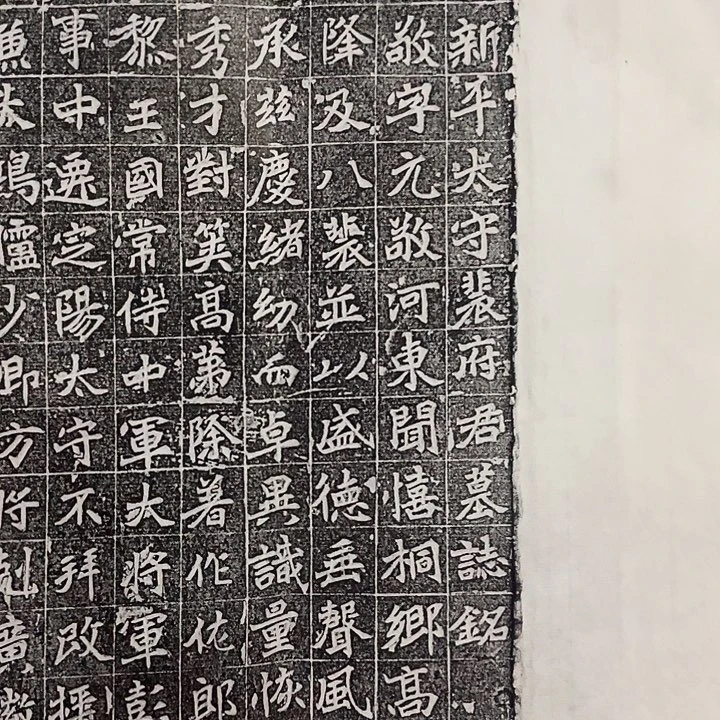 新平太守裴府君墓誌銘
敬字元敬河東聞憘桐鄉高
降及八裴並以盛德垂聲風
承茲慶緒幼而卓異識量恢
秀才對策高第除著作佐郎
黎王國常侍中軍大將軍彭
事中遷定陽太守不拜改
太鴻臚少卿方將剋廣